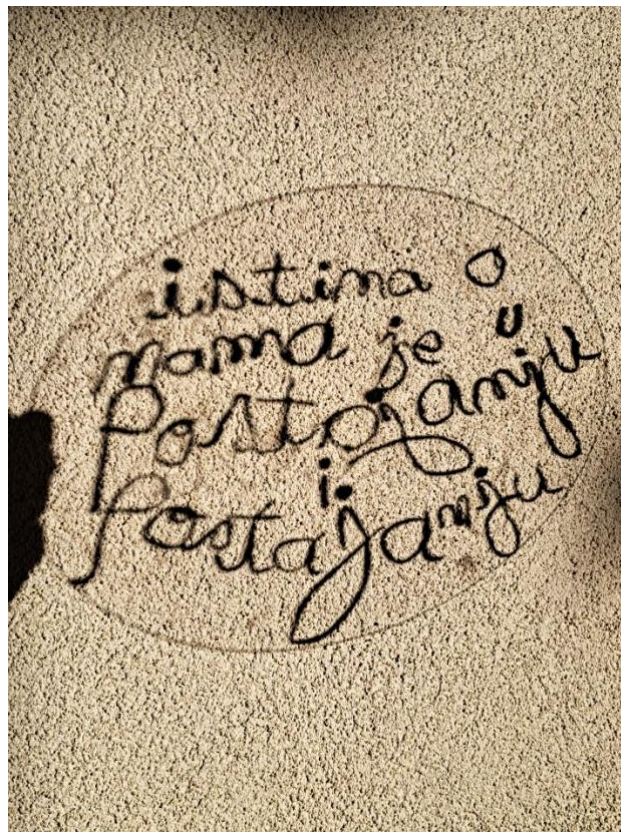 istina o
nama je u
Postojanju
i
Postajanju